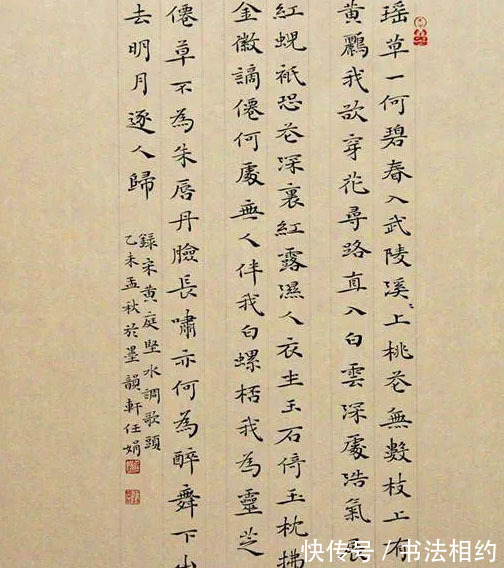 瑶草一何碧春入武陵溪〻上桃花無數枝上有
黄鸝我欲穿花尋路直入白雲深處浩氣展
紅蜺祇恐花深裏紅露濕人衣坐玉石倚玉枕拂
金徽謫僊何處無人伴我白螺桮我為靈芝
僊草不為朱唇丹臉長嘯亦何為醉舞下山
去明月逐人歸
録宋黄庭堅水調歌頭
乙未孟秋於墨韻軒任娟
快传号 / 书法相约